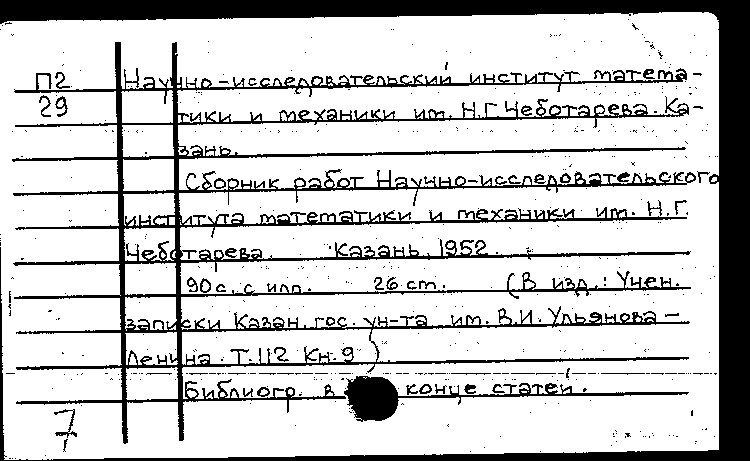 П2 Научно-исследовательский институт матема-
29 тики и механики им. Н.Г. Чеботарева. Ка-
зань.
Сборник работ Научно-исследовательского
института математики и механики им. Н.Г.
Чеботарева. Казань, 1952.
90 с. с илл. 26 см. (В изд.: Учен.
записки Казан. гос. ун-та им. В.И. Ульянова-
Ленина. Т. 112 Кн. 9)
Библиогр. в конце статей.
7